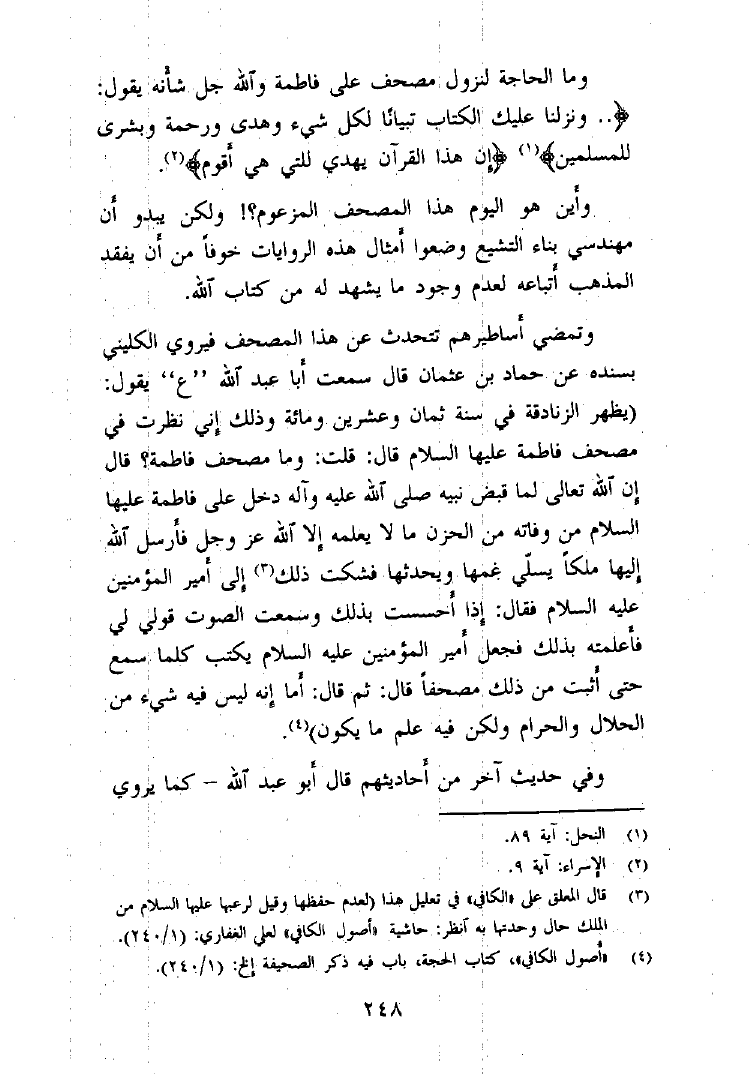 وما الحاجة لنزول مصحف على فاطمة والله جل شأنه يقول:
﴿.. ونزلنا عليك الكتاب تبيانًا لكل شيء وهدى ورحمة وبشرى
للمسلمين﴾(١) ﴿إن هذا القرآن يهدي للتي هي أقوم﴾(٢).
وأين هو اليوم هذا المصحف المزعوم؟! ولكن يبدو أن
مهندسي بناء التشيع وضعوا أمثال هذه الروايات خوفاً من أن يفقد
المذهب أتباعه لعدم وجود ما يشهد له من كتاب الله.
وتمضي أساطيرهم تتحدث عن هذا المصحف فيروي الكليني
بسنده عن حماد بن عثمان قال سمعت أبا عبد الله ’’ع‘‘ يقول:
(يظهر الزنادقة في سنة ثمان وعشرين ومائة وذلك إني نظرت في
مصحف فاطمة عليها السلام قال: قلت: وما مصحف فاطمة؟ قال
إن الله تعالى لما قبض نبيه صلى الله عليه وآله دخل على فاطمة عليها
السلام من وفاته من الحزن ما لا يعلمه إلا الله عز وجل فأرسل الله
إليها ملكاً يسلّي غمها ويحدثها فشكت ذلك(٣) إلى أمير المؤمنين
عليه السلام فقال: إذا أحسست بذلك وسمعت الصوت قولي لي
فأعلمته بذلك فجعل أمير المؤمنين عليه السلام يكتب كلما سمع
حتى أثبت من ذلك مصحفاً قال: ثم قال: أما إنه ليس فيه شيء من
الحلال والحرام ولكن فيه علم ما يكون)(٤).
وفي حديث آخر من أحاديثهم قال أبو عبد الله – كما يروي
(١) النحل: آية ٨٩.
(٢) الإسراء: آية ٩.
(٣) قال المعلق على «الكافي» في تعليل هذا (لعدم حفظها وقيل لرعبها عليها السلام من
الملك حال وحدتها به أنظر: حاشية «أصول الكافي» لعلي الغفاري: (١/٢٤٠).
(٤) «أصول الكافي»، كتاب الحجة، باب فيه ذكر الصحيفة إلخ: (١/٢٤٠).
٢٤٨